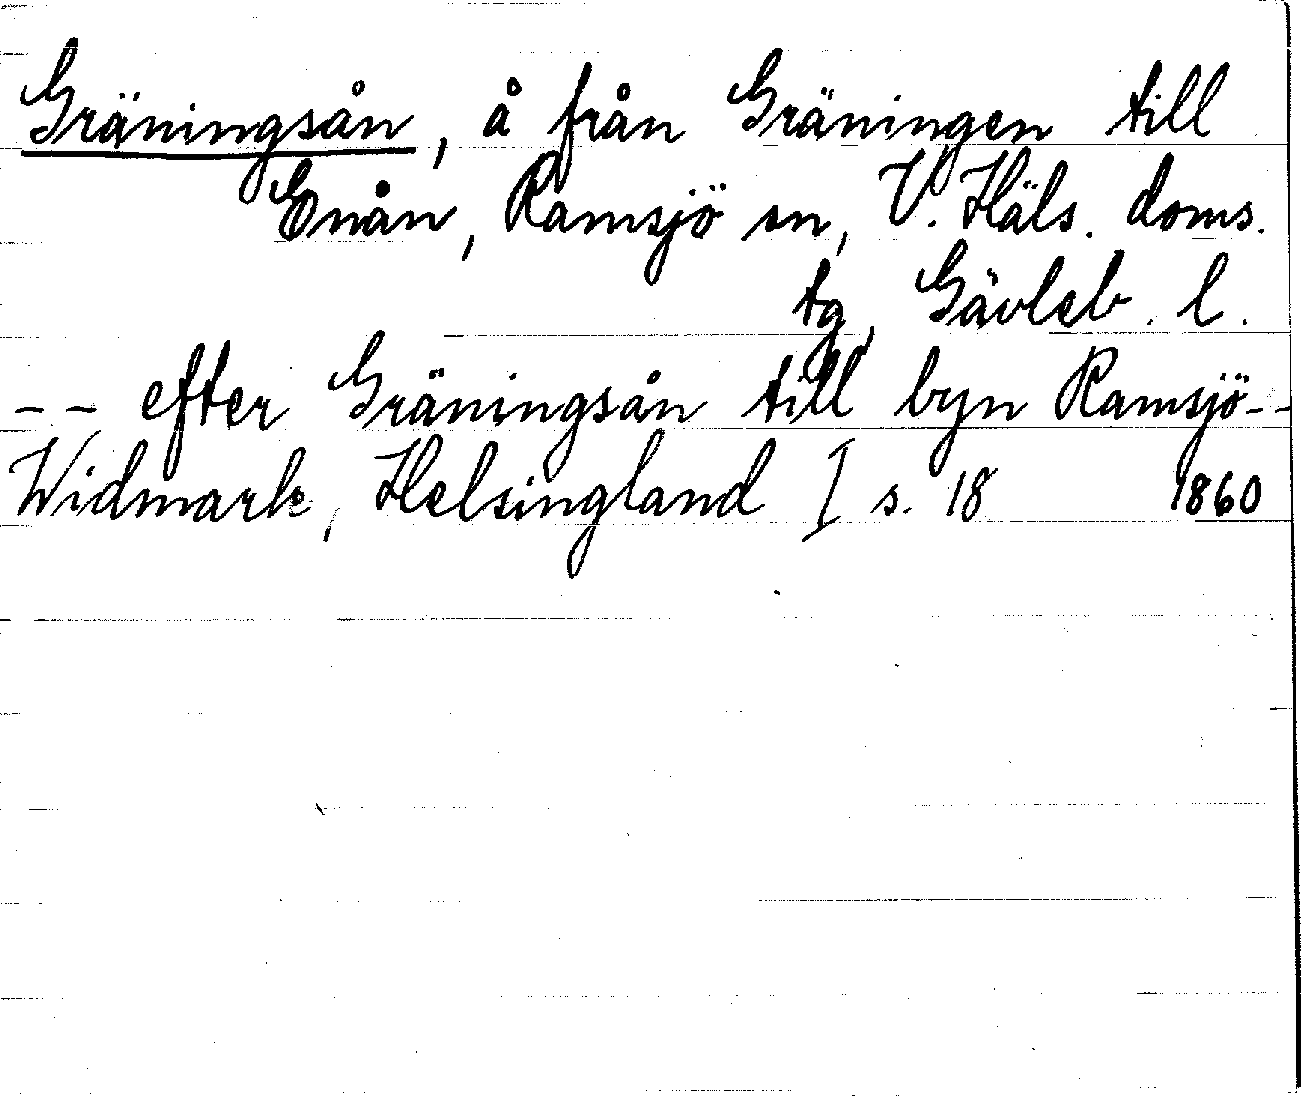 Gräningsån, å från Gräningen till
Enån, Ramsjö sn, V. Häls. doms.
tg, Gävleb. l.
-- efter Gräningsån till byn Ramsjö--
Widmark, Helsingland I s. 18 1860